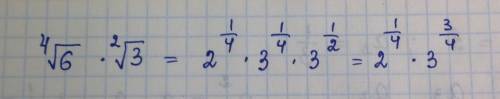 ⁴√6 · ²√3 = 2^(1/4) · 3^(1/4) · 3^(1/2) = 2^(1/4) · 3^(3/4)